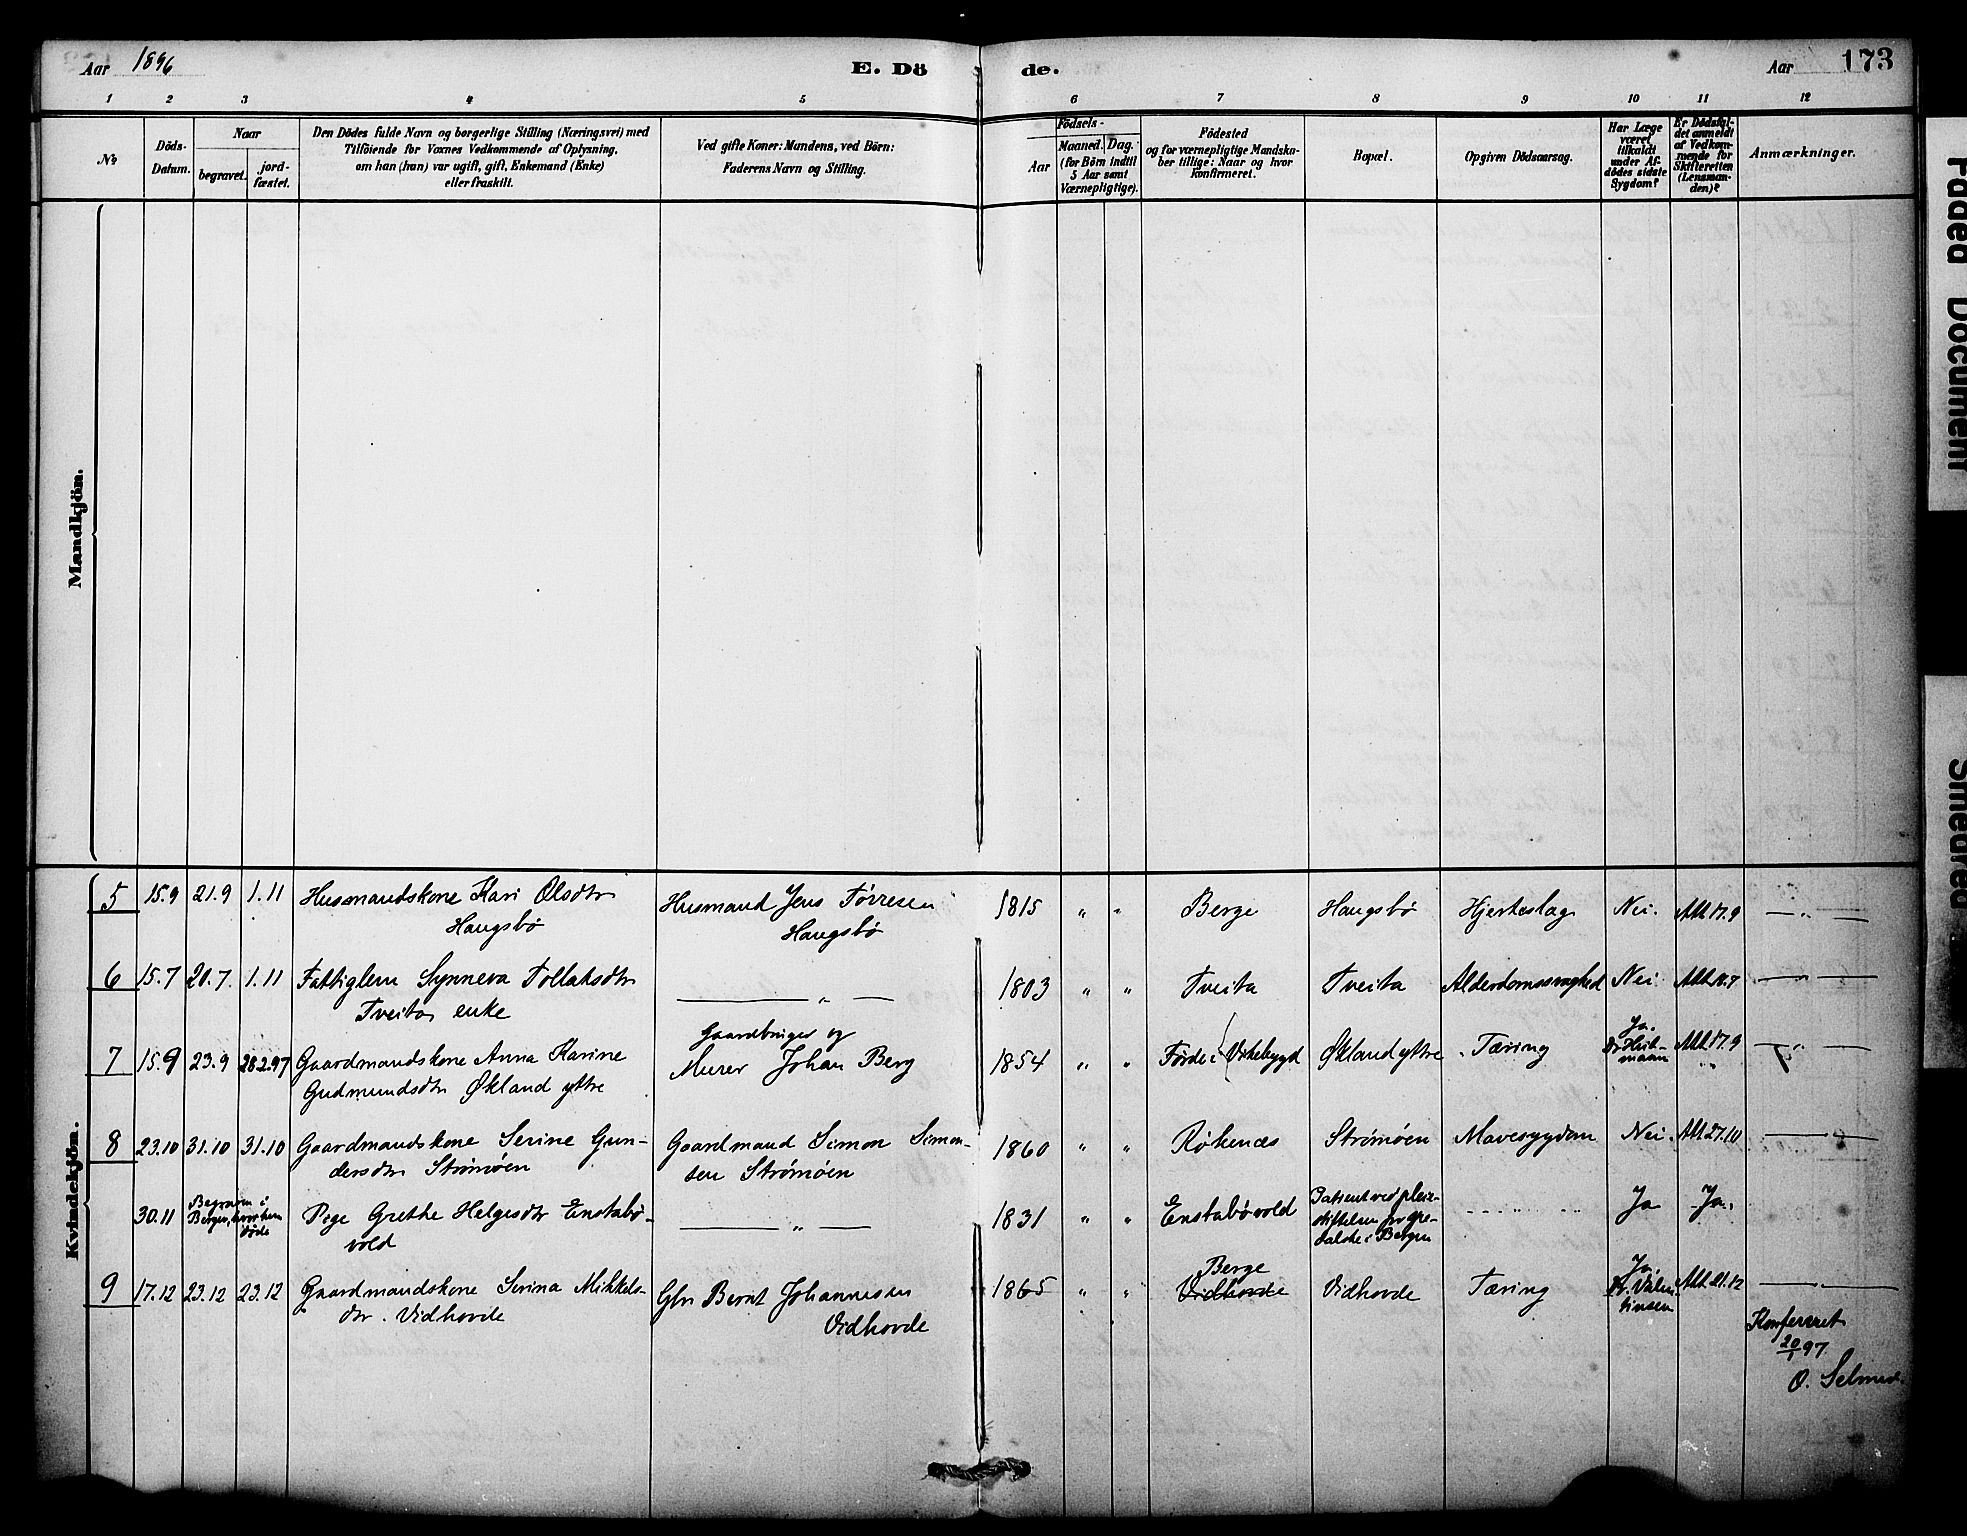 Aar 1896
E. Dö
de.
Aar
173
1 2 3 4 5 6 7 8 9 10 11 12
No
Döds-
Datum.
Naar
begravet.
jord-
fæstet.
Den Dödes fulde Navn og borgerlige Stilling (Næringsvei) med
Tilföiende for Voxnes Vedkommende af Oplysning,
om han (hun) var ugift, gift, Enkemand (Enke)
eller fraskilt.
Ved gifte Koner: Mandens, ved Börn:
Faderens Navn og Stilling.
Födsels-
Aar
Maaned. Dag.
(for Börn indtil
5 Aar samt
Værnepligtige).
Födested
og for værnepligtige Mandska-
ber tillige: Naar og hvor
konfirmeret.
Bopæl.
Opgiven Dödsaarsag.
Har Læge
været
tilkaldt
under Af-
dödes sidste
Sygdom?
Er Dödsfal-
det anmeldt
af Vedkom-
mende for
Skifteretten
(Lensman-
den)?
Anmærkninger.
Mandkjön.
Kvindekjön.
5 15.9 21.9 1.11 Husmandskone Kari Olsdtr
Haugsbö
Husmand Jens Tørresen
Haugsbö
1815 " " Berge Haugsbö Hjerteslag Nei. Att 17.9 — " —
6 15.7 20.7. 1.11 Fattiglem Synneva Tollaksdtr
Tveita enke
— " —
1803 " " Tveita Tveita Alderdomssvaghed Nei Att 18.7 — " —
7 15.9 23.9 28.2.97 Gaardmandskone Anna Karine
Gudmundsdtr Økland yttre
Gaardbruger og
Murer Johan Berg
1854 " " Førde i Vikebygd Økland yttre Tæring
Ja.
Dr Heit-
mann
Att 17.9
— " —
8 23.10 31.10 31.10 Gaardmandskone Serine Gun-
dersdtr Strömöen
Gaardmand Simon Simon-
sen Strömöen
1860 " " Røkenæs Strömöen Mavesygdom Nei. Att 27.10
30.11 Begraven i
Bergen, hvor hun
döde
Pige Grethe Helgesdtr Enstabö-
vold
— " —
1831 " " Enstabövold
Patient ved pleie-
stiftelsen for spe-
dalske i Bergen
Ja Ja.
9 17.12 23.12 23.12 Gaardmandskone Serina Mikkels-
dtr. Vidhovde
Gbr Bernt Johannesen
Vidhovde
1865 " " Berge
Vidhovde
Vidhovde Tæring
Ja,
Dr. Valen-
tinsen
Att 21.12
Konfereret
20/1 97.
O. Selmer
Faded Document
Smeared